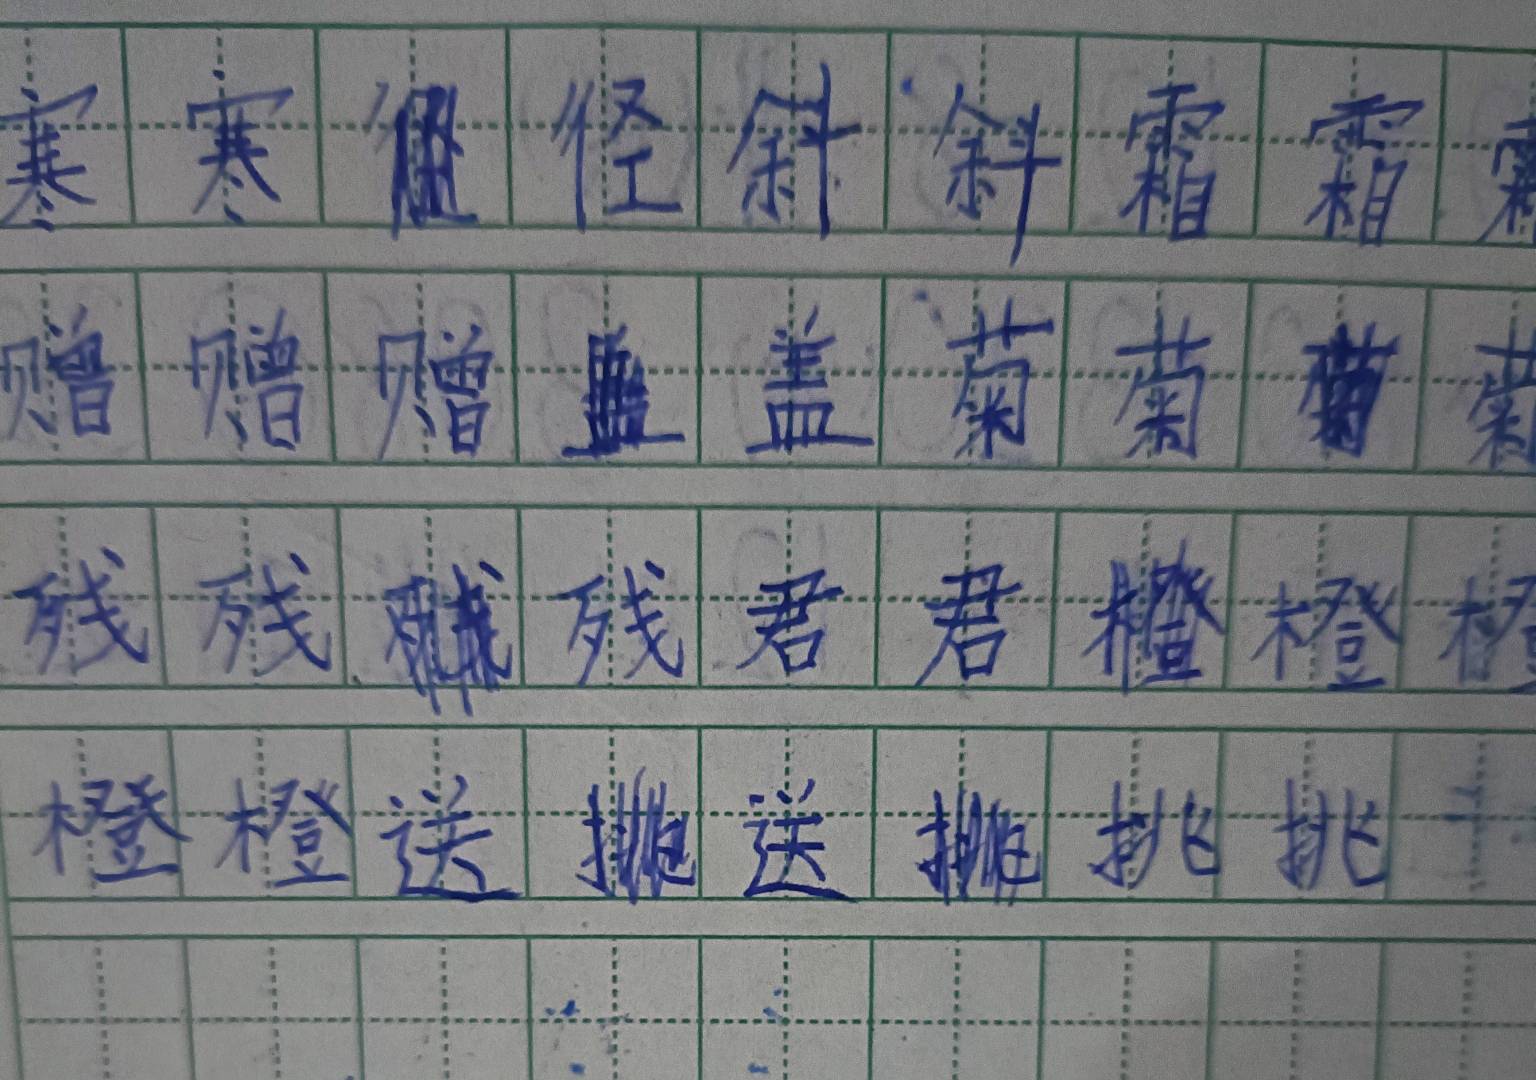 寒寒径斜斜霜霜霜
赠赠赠盖菊菊菊
残残残君君橙橙
橙橙送送挑挑